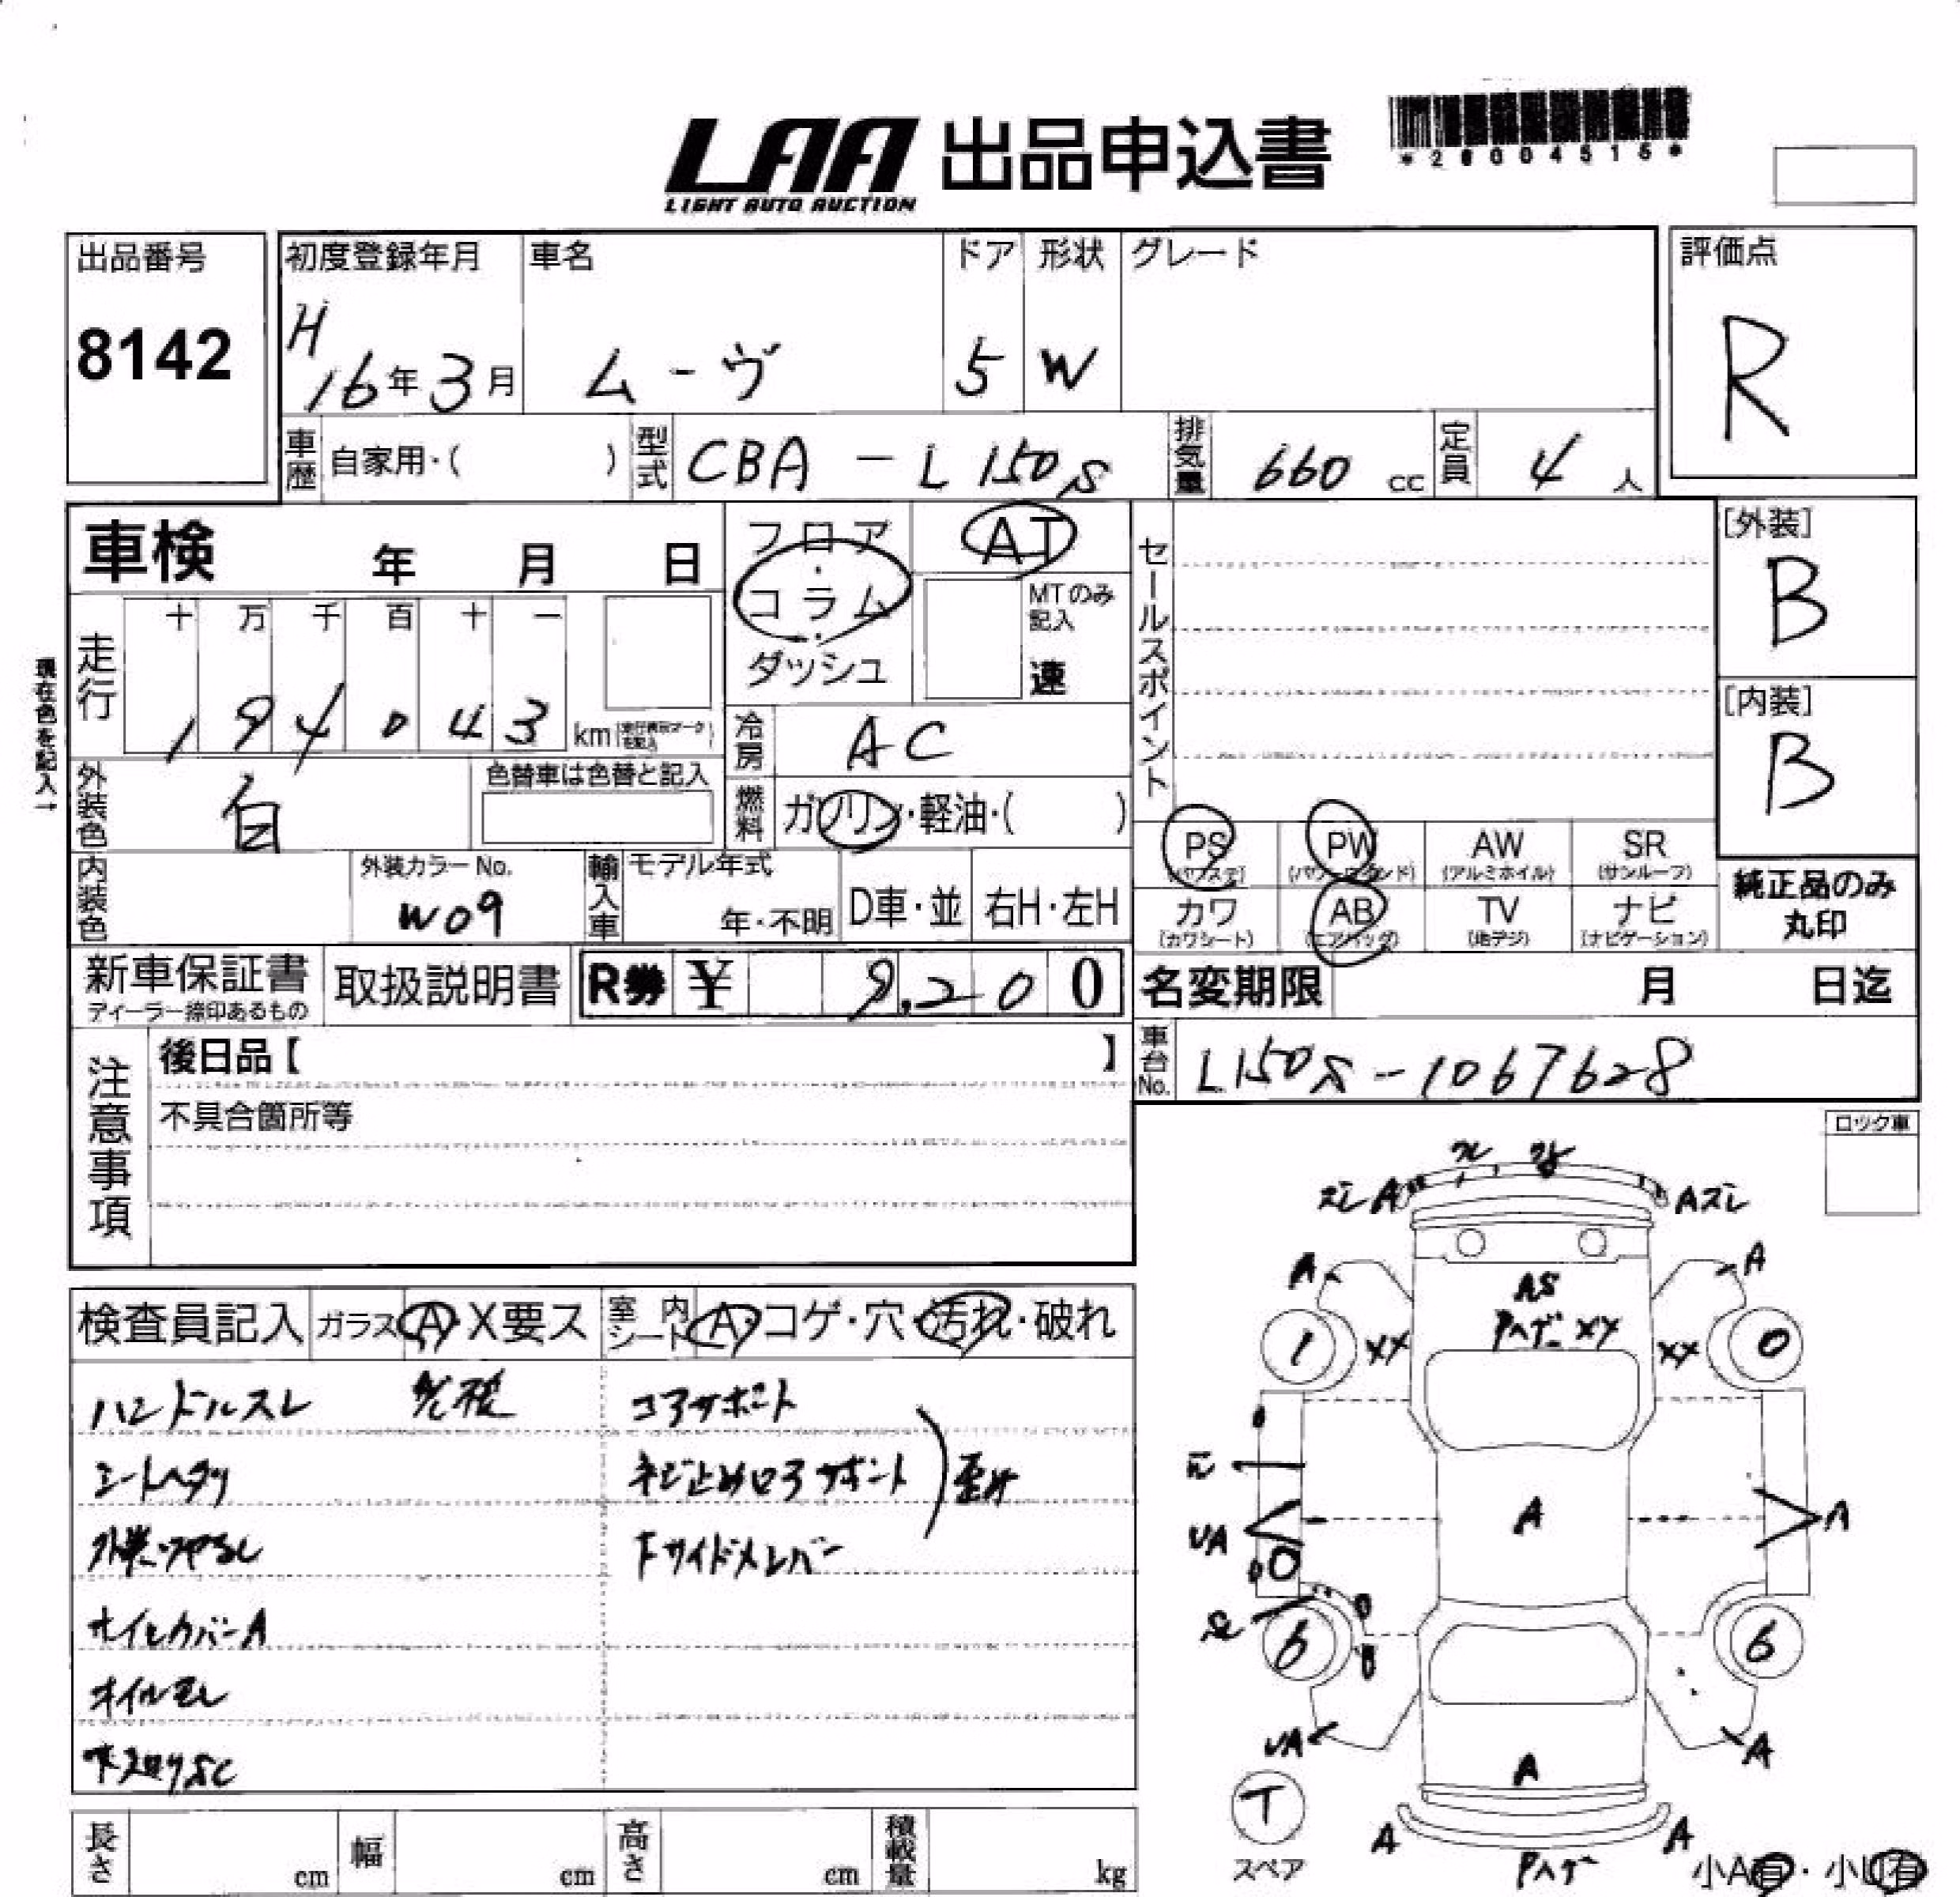 LAA 出品申込書
LIGHT AUTO AUCTION
*28004515*
出品番号
8142
初度登録年月
H
16年3月
車名
ムーヴ
ドア
5
形状
W
グレード
評価点
R
車歴 自家用・( )
型式 CBA-L150S
排気量 660 cc
定員 4 人
車検 年 月 日
フロア・コラム・ダッシュ
AT
MTのみ記入
速
セールスポイント
[外装]
B
[内装]
B
現在色を記入→
走行
十 万 千 百 十 一
1 9 4 0 4 3 km
冷房 AC
外装色 白
色替車は色替と記入
燃料 ガソリン・軽油・( )
内装色
外装カラーNo.
W09
輸入車
モデル年式
年・不明
D車・並
右H・左H
PS
(パワステ)
PW
(パワーウインド)
AW
(アルミホイル)
SR
(サンルーフ)
カワ
(カワシート)
AB
(エアバッグ)
TV
(地デジ)
ナビ
(ナビゲーション)
純正品のみ
丸印
新車保証書
ディーラー捺印あるもの
取扱説明書
R券 ¥ 9,200
名変期限 月 日迄
注意事項
後日品【 】
不具合箇所等
車台No. L150S-1067628
ロック車
検査員記入
ガラス A・X要ス
室内シート A・コゲ・穴・汚れ・破れ
ハンドルスレ
シートヘタリ
オイルモレ
コアサポート
下サイドメンバー
ズレ A
A ズレ
A
A
AS
Pハゲ XX
1
XX
XX
0
UA
A
A
6
6
UA
A
A
T
スペア
A
A
Pハゲ
小A有・小U有
長さ cm
幅 cm
高さ cm
積載量 kg